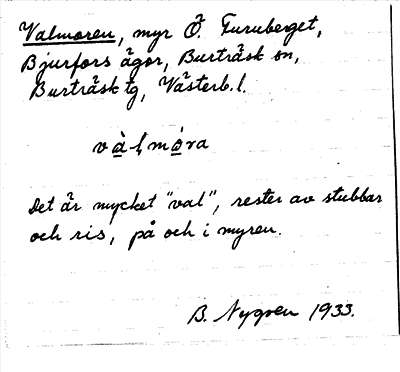 Valmoren, myr Ö. Furuberget,
Bjurfors ägor, Burträsk sn,
Burträsk tg, Västerb. l.
vàl̥mo̲ra
Det är mycket "val", rester av stubbar
och ris, på och i myren.
B. Nygren 1933.